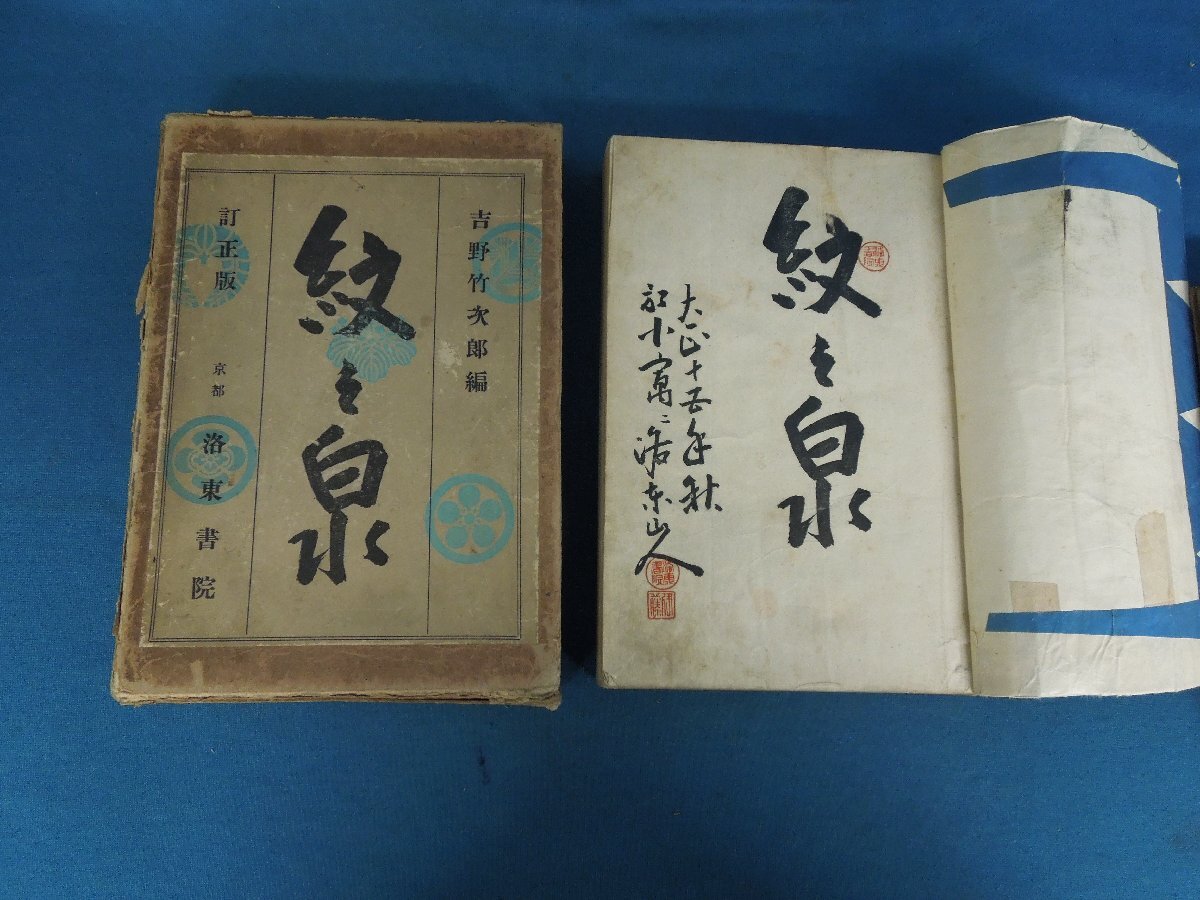 吉野竹次郎編
紋之泉
訂正版
京都 洛東書院
紋之泉
大正十五年秋
洛東山人